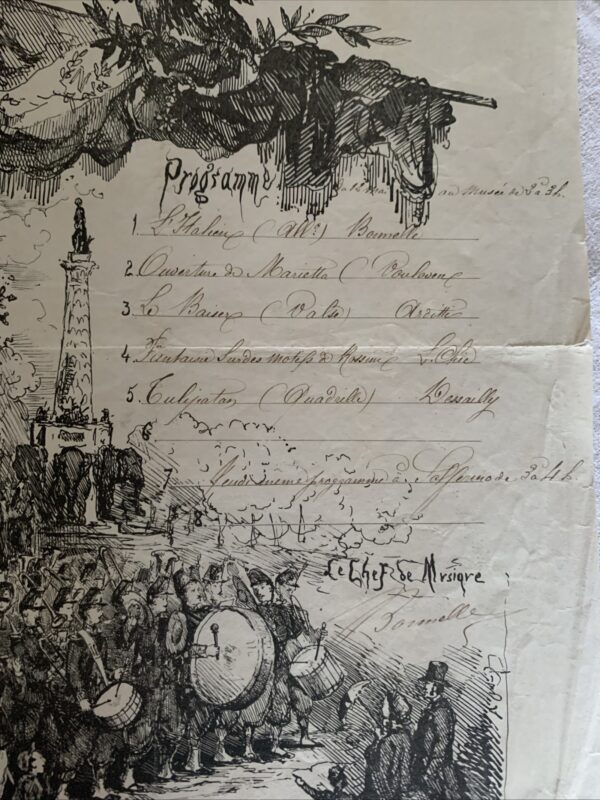 Programme au Musée de 2 à 3 h.
1. L'Italien (All°) Bonnelle
2 Ouverture de Marietta (
3 Le Baiser (Valse) Arditti
4 Fantaisie sur des motifs de Rossini
5. Tulipatan (Quadrille) Dessailly
6
7 Jeudi même programme à de 3 à 4 h.
8
Le Chef de Musique
Bonnelle